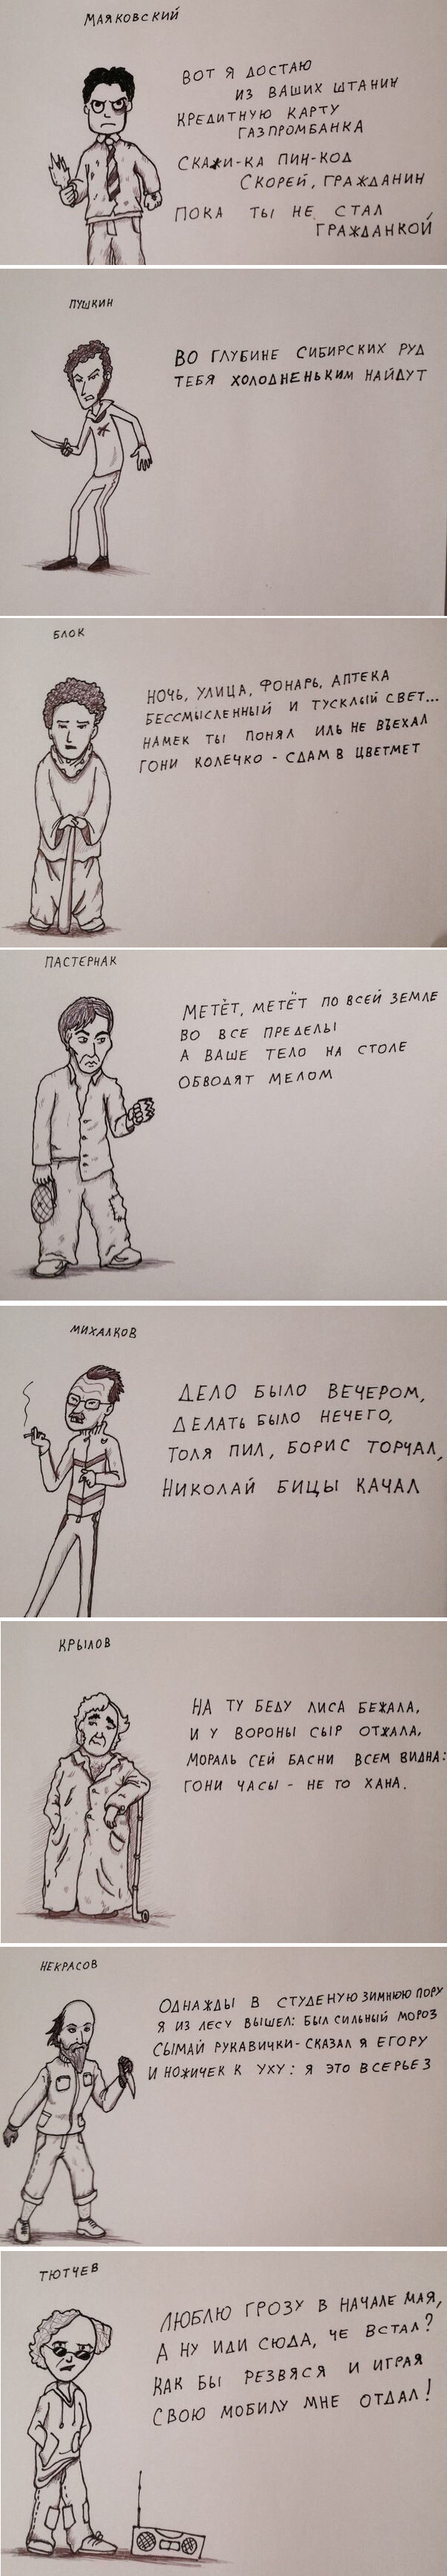 МАЯКОВСКИЙ
ВОТ Я ДОСТАЮ
ИЗ ВАШИХ ШТАНИН
КРЕДИТНУЮ КАРТУ
ГАЗПРОМБАНКА
СКАЖИ-КА ПИН-КОД
СКОРЕЙ, ГРАЖДАНИН
ПОКА ТЫ НЕ СТАЛ
ГРАЖДАНКОЙ
ПУШКИН
ВО ГЛУБИНЕ СИБИРСКИХ РУД
ТЕБЯ ХОЛОДНЕНЬКИМ НАЙДУТ
БЛОК
НОЧЬ, УЛИЦА, ФОНАРЬ, АПТЕКА
БЕССМЫСЛЕННЫЙ И ТУСКЛЫЙ СВЕТ...
НАМЕК ТЫ ПОНЯЛ ИЛЬ НЕ ВЪЕХАЛ
ГОНИ КОЛЕЧКО - СДАМ В ЦВЕТМЕТ
ПАСТЕРНАК
МЕТЁТ, МЕТЁТ ПО ВСЕЙ ЗЕМЛЕ
ВО ВСЕ ПРЕДЕЛЫ
А ВАШЕ ТЕЛО НА СТОЛЕ
ОБВОДЯТ МЕЛОМ
МИХАЛКОВ
ДЕЛО БЫЛО ВЕЧЕРОМ,
ДЕЛАТЬ БЫЛО НЕЧЕГО,
ТОЛЯ ПИЛ, БОРИС ТОРЧАЛ,
НИКОЛАЙ БИЦЫ КАЧАЛ
КРЫЛОВ
НА ТУ БЕДУ ЛИСА БЕЖАЛА,
И У ВОРОНЫ СЫР ОТЖАЛА,
МОРАЛЬ СЕЙ БАСНИ ВСЕМ ВИДНА:
ГОНИ ЧАСЫ - НЕ ТО ХАНА.
НЕКРАСОВ
ОДНАЖДЫ В СТУДЕНУЮ ЗИМНЮЮ ПОРУ
Я ИЗ ЛЕСУ ВЫШЕЛ: БЫЛ СИЛЬНЫЙ МОРОЗ
СЫМАЙ РУКАВИЧКИ - СКАЗАЛ Я ЕГОРУ
И НОЖИЧЕК К УХУ: Я ЭТО ВСЕРЬЕЗ
ТЮТЧЕВ
ЛЮБЛЮ ГРОЗУ В НАЧАЛЕ МАЯ,
А НУ ИДИ СЮДА, ЧЕ ВСТАЛ?
КАК БЫ РЕЗВЯСЯ И ИГРАЯ
СВОЮ МОБИЛУ МНЕ ОТДАЛ!